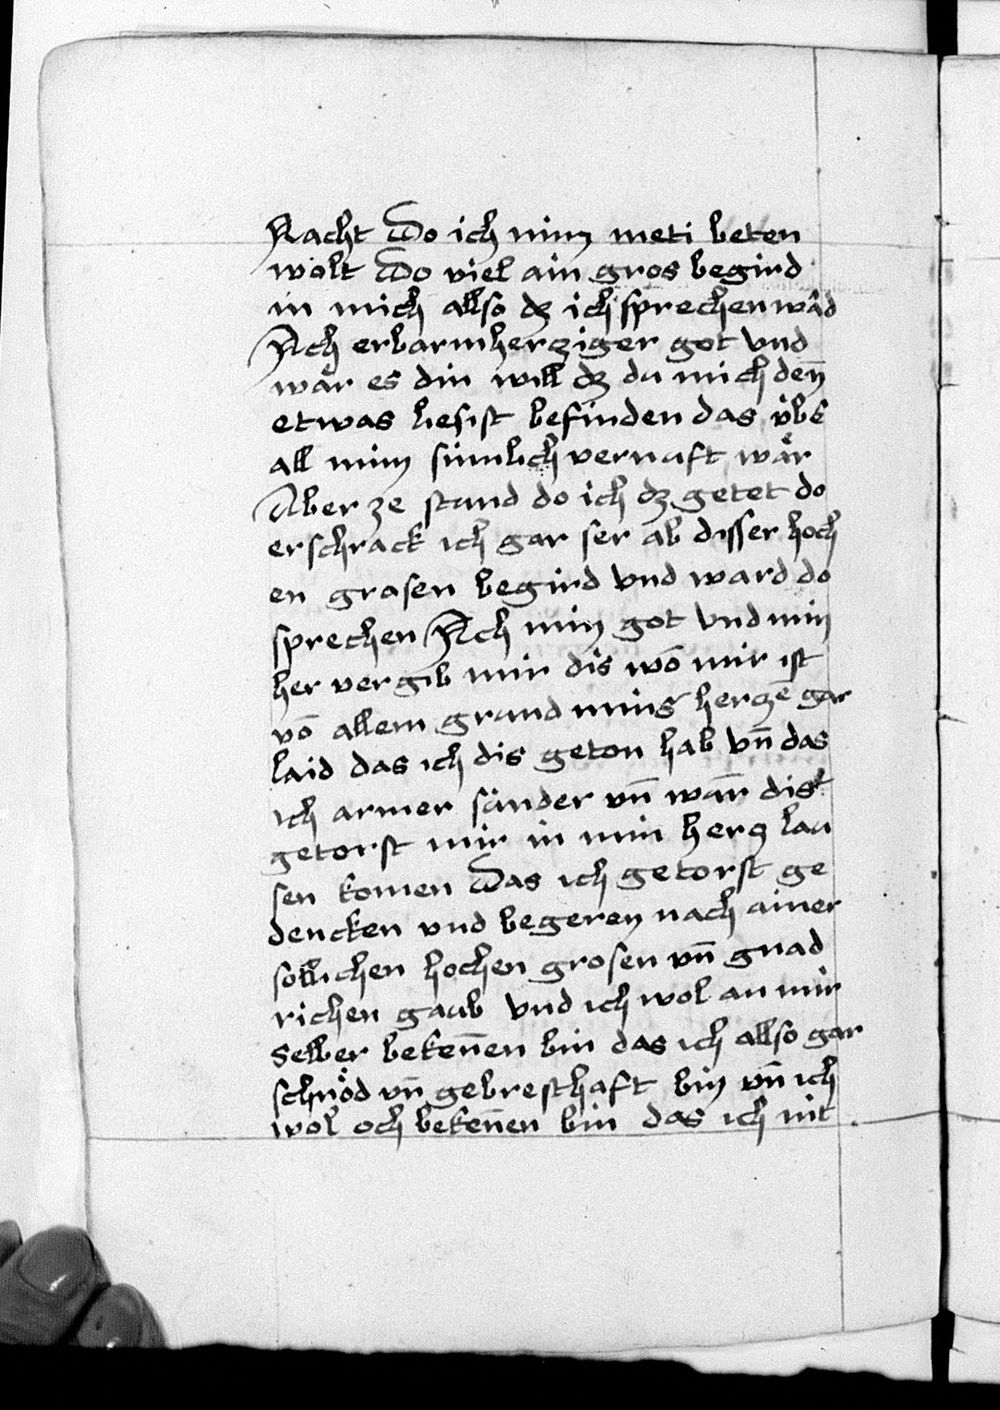 Nacht Do ich min meti beten
wolt Do viel ain gros begird
in mich allso dz ich sprechen wa᷑d
Ach erbarmherziger got vnd
wär es din will dz du mich den̄
etwas liesist befinden das v̈b᷑
all min sinnlich vernuft wär
Aber ze stand do ich dz getet do
erschrack ich gar ser ab disser hoch
en grasen begird vnd ward do
sprechen Ach min got vnd min
her vergib mir dis wō mir ist
vō allem grund mins herzē gar
laid das ich dis geton hab vn̄ das
ich armer sünder vn̄ war̄ dis
getorst mir in min herz lau
sen komen Das ich getorst ge
dencken vnd begeren nach ainer
söllichen hochen grosen vn̄ gnad
richen gaub vnd ich wol an mir
selber beken̄en bin das ich allso gar
schnöd vn̄ gebresthaft bin vn̄ ich
wol och beken̄en bin das ich nit